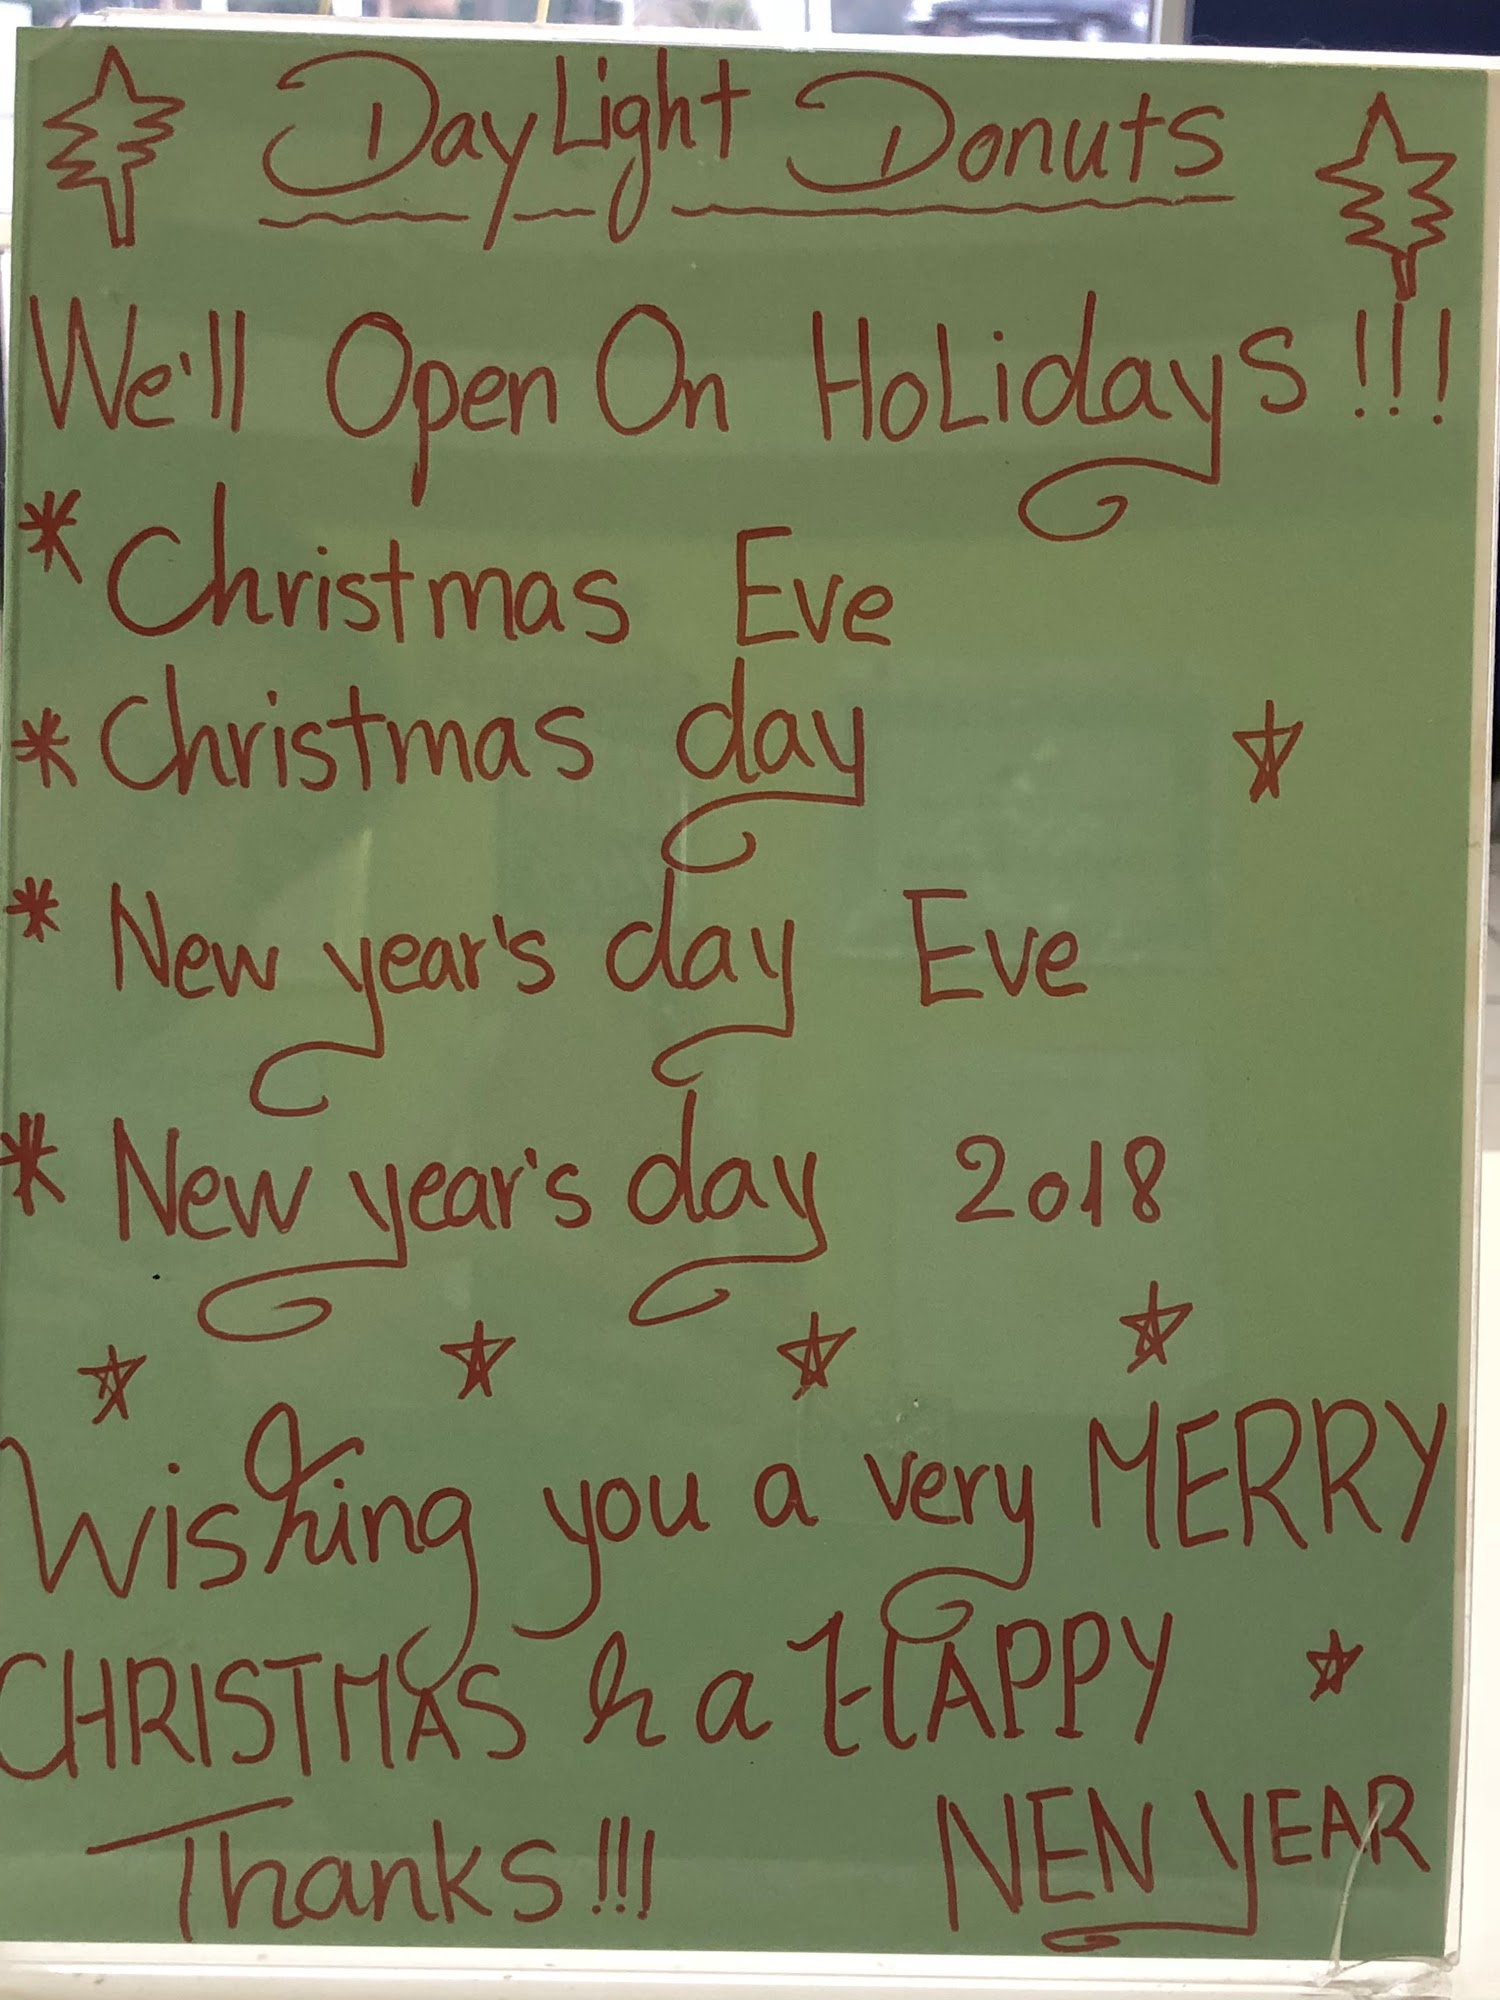 DayLight Donuts
We'll Open On HoLidays!!!
* Christmas Eve
* Christmas day
* New year's day Eve
* New year's day 2018
Wishing you a very MERRY
CHRISTMAS & a HAPPY
NEN YEAR
Thanks!!!